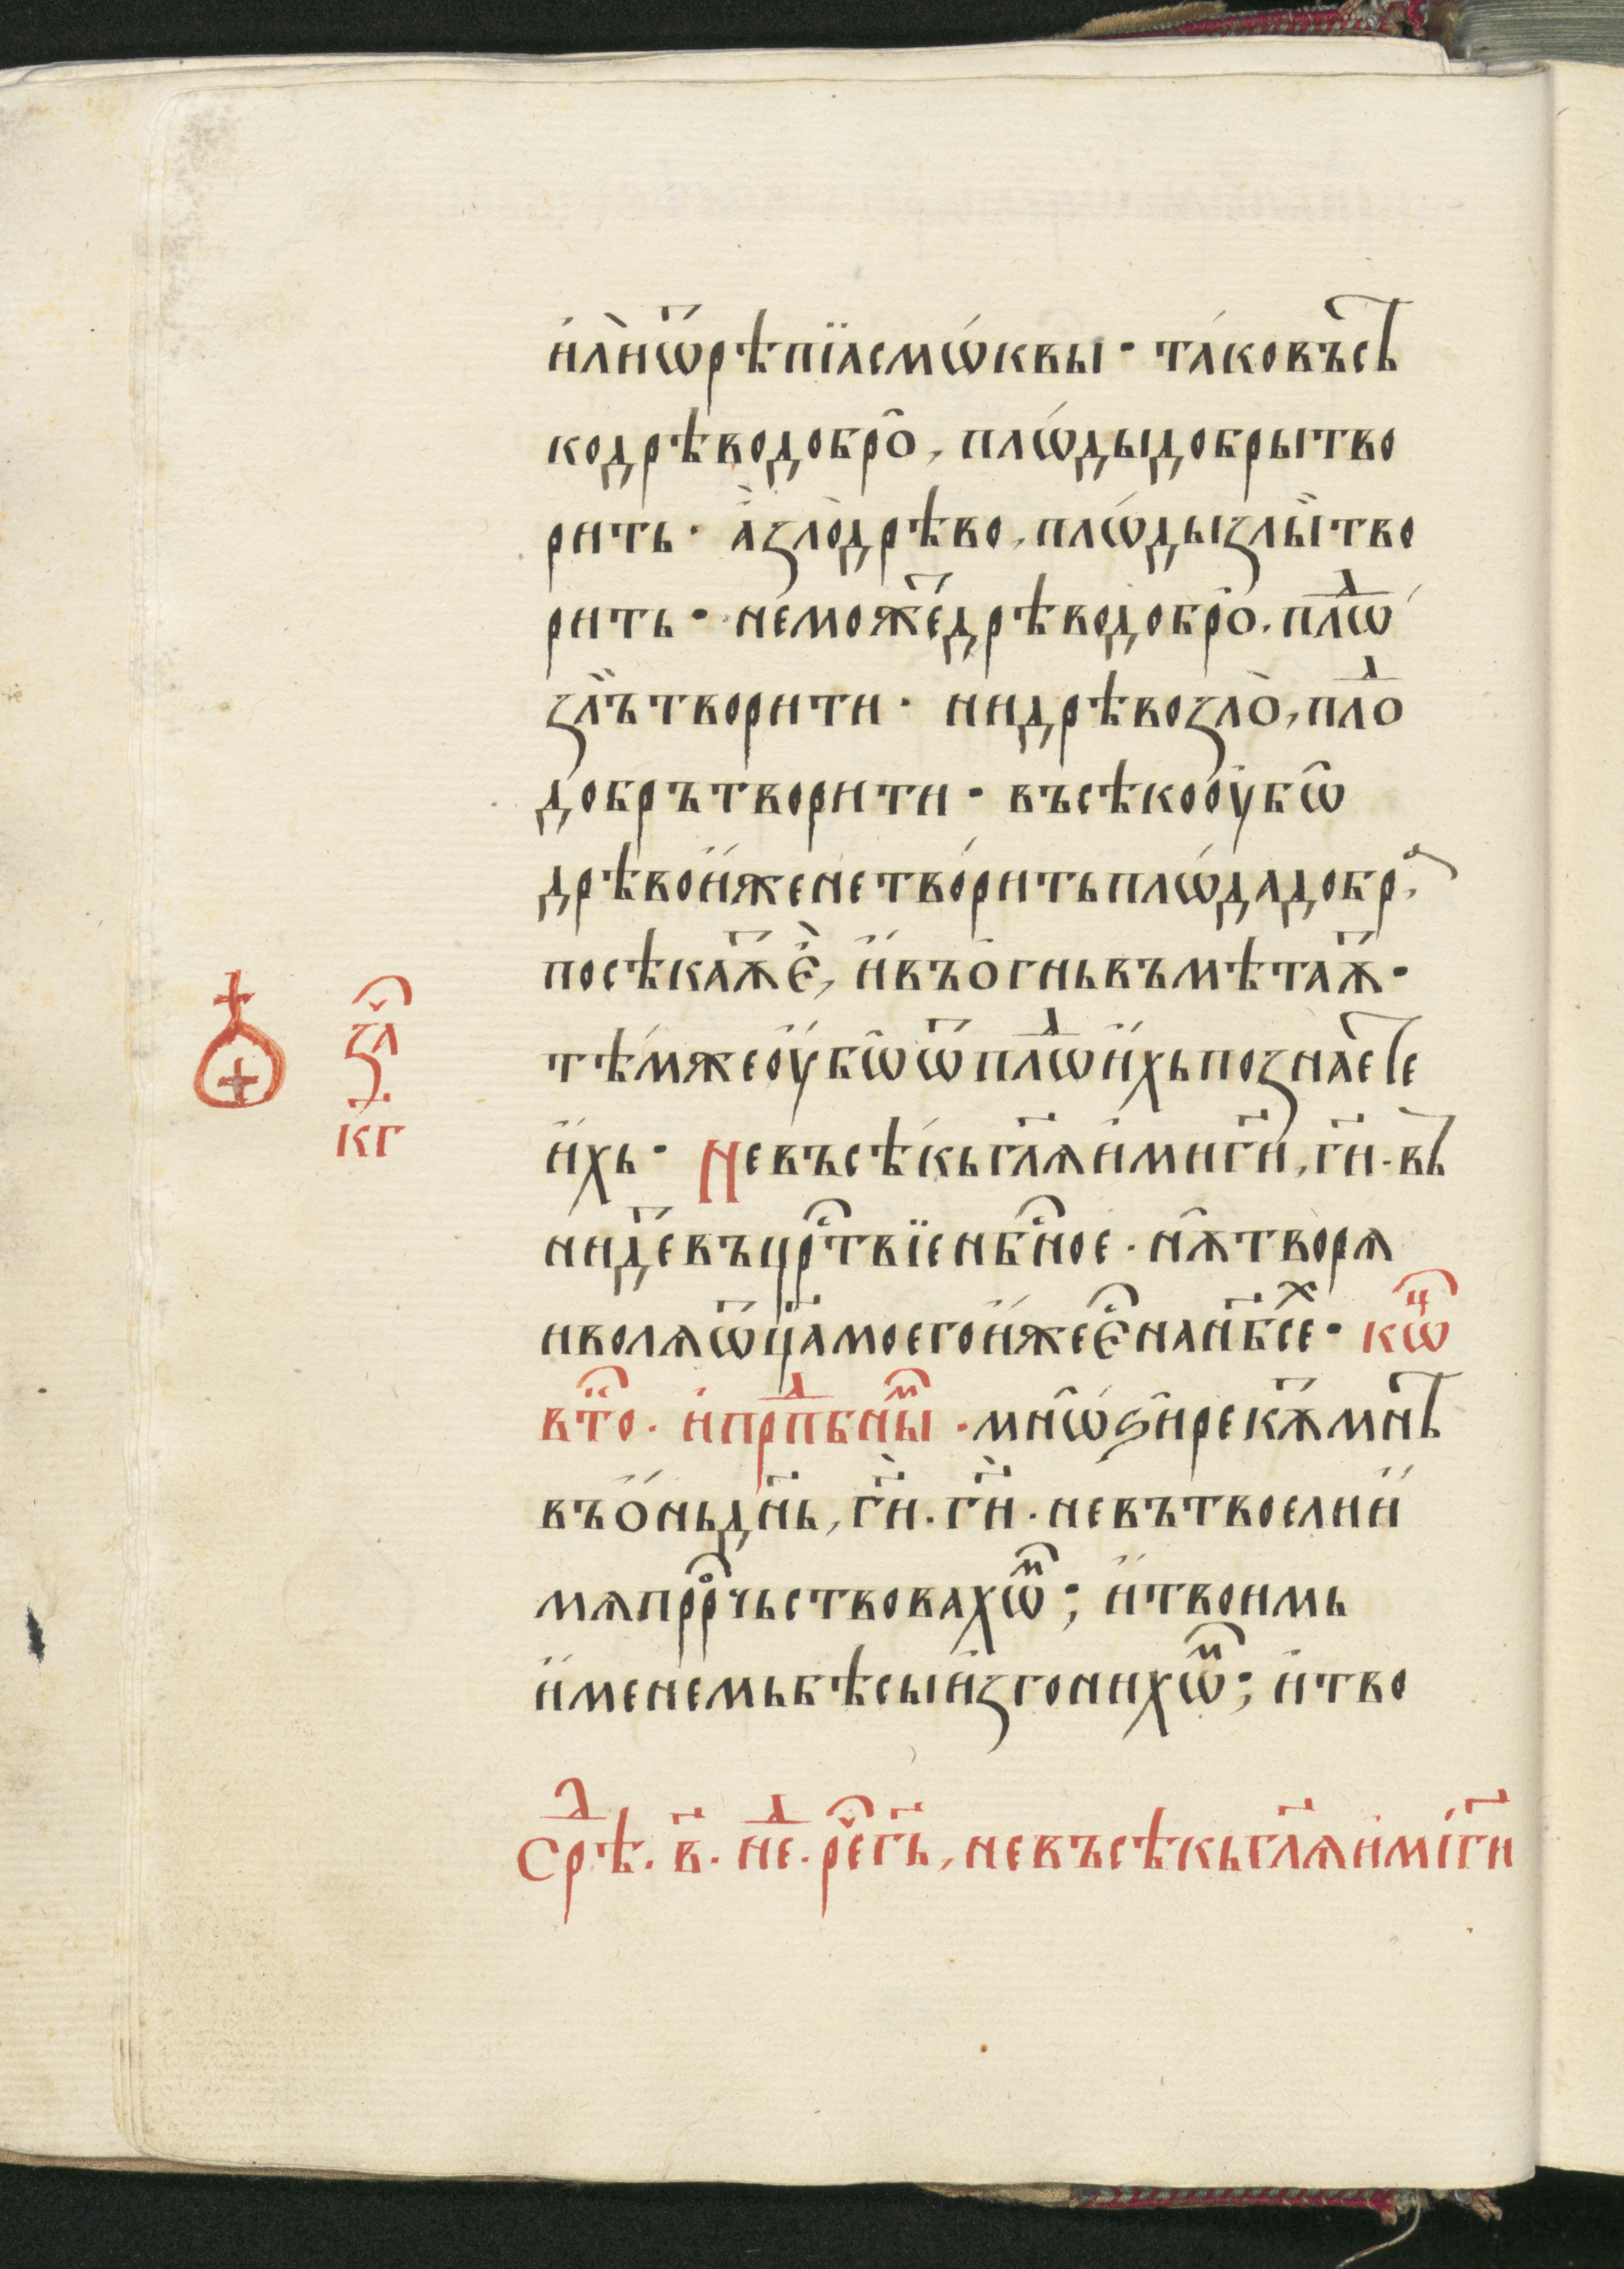 и҆лѝ ѿ рѣпїа смѡ́квы · та́ко въсѣ
ко дрѣво добро̑, плѡ́ды добры твo
рить · а҆̀ ꙁло̀ дрѣво, плѡ́ды ꙁлы̏ тво
рить · не може҇ дрѣво добро̑, плѡⷣ
ꙁл̏ъ творити · ни дрѣво ꙁло̀, плоⷣ
добръ творити · въсѣко оу҆бѡ̑
дрѣво и҆́же не тво́рить плѡ́да добрⷶ,
посѣкаѫ҇ є҆̀, и҆ въ о҆гнь въмѣтаѫ҇ ·
тѣ́мже оу҆бѡ̑ ѿ плѡⷣ и҆́хь познаетⷭ҇е
и҆́хь · Не въсѣ́кь гл҃ѧ и҆ ми г҃и, г҃и · вь
нидⷷ въ црⷭ҇твїе нбⷭ҇ное · нѫ̑ творѧ
и волѧ ѿц҃а моего и҆́же є҆ⷭ҇ на нб҃сеⷯ · кѡⷰ҇
втⷪ҇ · и҆ прпⷣбныⷨ · мнѡ́ѕи рекѫ҇ мнѣ
въ ѻ҆́нь дн҃ь, г҃и · г҃и · не въ твое ли и҆́
мѧ прⷪ҇рчьствовахѡⷨ; и҆ твоимь
и҆́менемь бѣсы и҆згонихѡⷨ; и҆ тво
ꙁаⷱ҇
кг
Срѣⷣ · в҃ · неⷣ · реⷱ҇ г҃ь, не въсѣкь гл҃ѧ и҆ мі г҃и